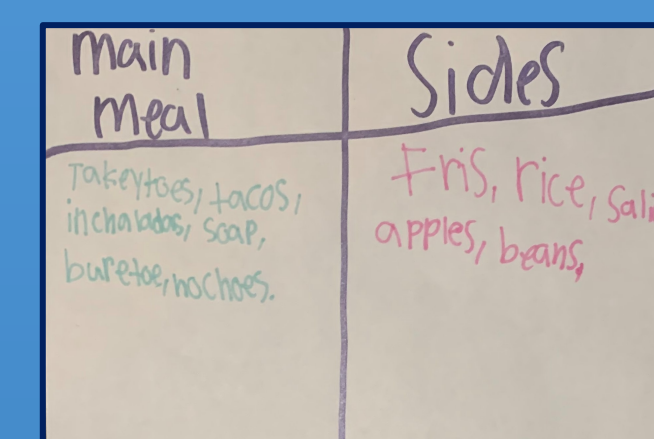 main
meal
Sides
Takeytoes, tacos,
inchaladas, soap,
buretoe, nochoes.
Fris, rice, Sali
apples, beans,